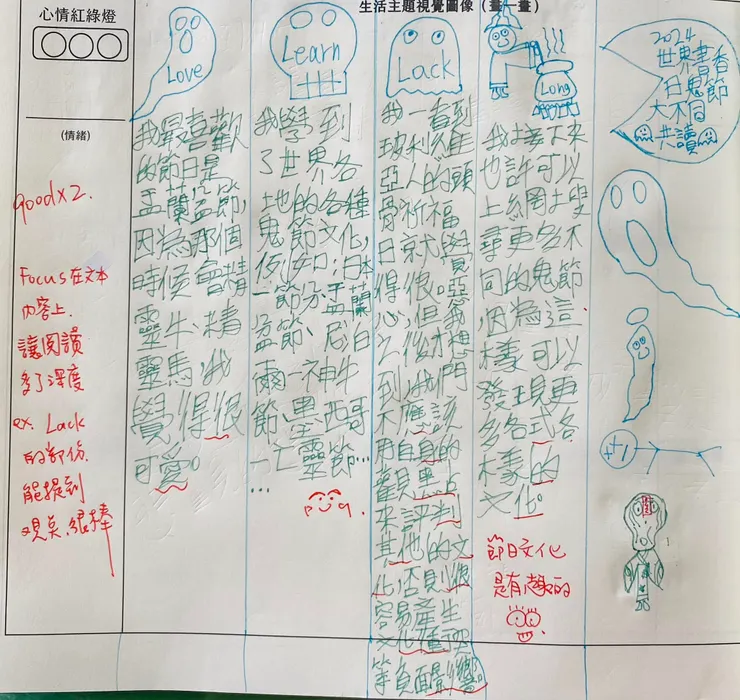 生活主題視覺圖像（畫一畫）
心情紅綠燈
(情緒)
goodx2.
Focus在文本
內容上.
讓閱讀
多了深度
ex. Lack
的部份.
能提到
觀點.很棒
Love
我最喜歡
的節日是
盂蘭盆節,
因為那個
時候會有精
靈牛、精
靈馬,我
覺得很
可愛。
Learn
我學到
了世界各
地的各種
鬼節文化,
例如:日本
一節分、盂蘭
盆節、尼泊
爾一神牛
節、墨西哥
一亡靈節…
…
Lack
我一看到
玻利維
亞人的頭
骨祈福
日就覺
得很噁
心,但我
之後才想
到我們
不應該
用自身的
觀點
來評判
其他的文
化,否則
容易產生
等負面影響。
Long
我接下來
也許可以
上網搜
尋更多不
同的鬼節
因為這
樣可以
發現更
多各式各
樣的
文化。
節日文化
是有趣的
2024
世界書香
日鬼節
大不同
共讀